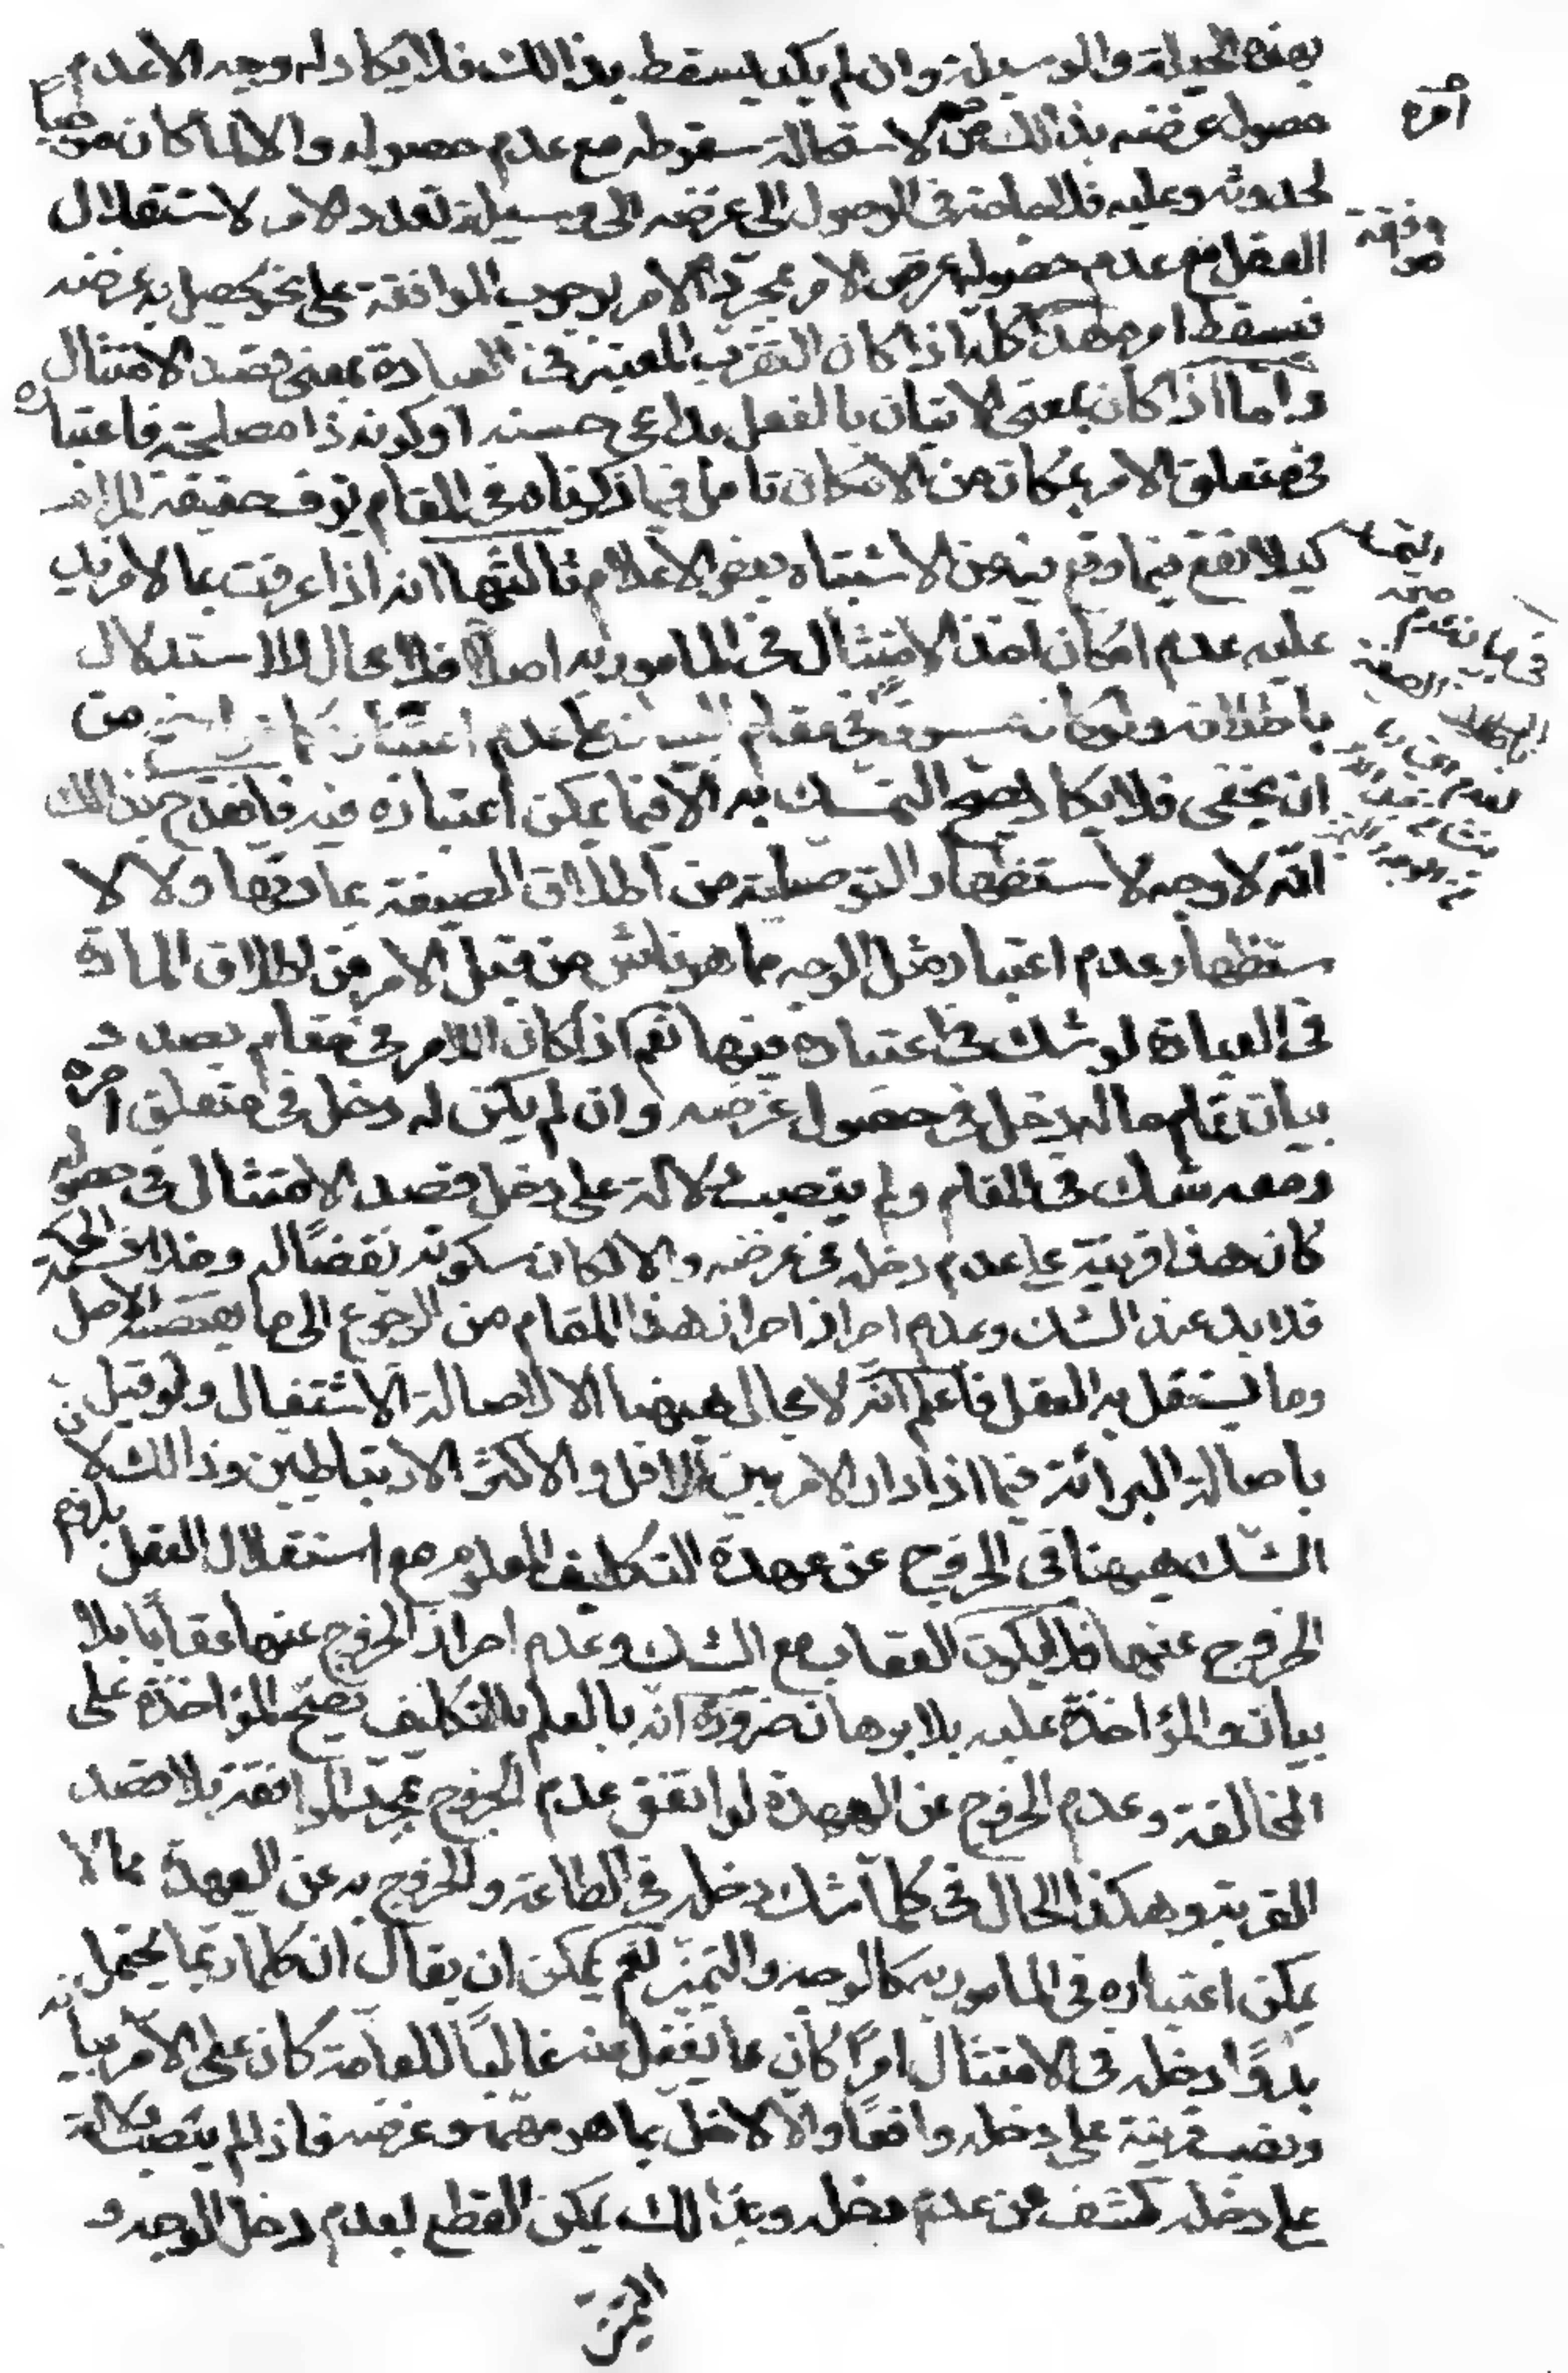 بهذه الحيلة والوسيلة وان لم يكد يسقط بذالك فلا يكاد له وجه الا عدم
حصول غرضه بذالك من امره لاستحالة سقوطه مع عدم حصوله والا لما كان موجباً
لحدوثه وعليه فلا حاجة فى الوصول الى غرضه الى وسيلة تعدد الامر لاستقلال
العقل مع عدم حصول غرض الامر بمجرد موافقة الامر بوجوب الموافقة على نحو يحصل به غرضه
فيسقط امره هذا كله اذا كان التقرب المعتبر فى العبادة بمعنى قصد الامتثال
واما اذا كان بمعنى الاتيان بالفعل بداعى حسنه او كونه ذا مصلحة فاعتباره
فى متعلق الامر بمكان من الامكان تامل فيما ذكرناه فى المقام توف حقيقة المرام
كيلا تقع فيما وقع فيه من الاشتباه بعض الاعلام ثالثتها انه اذا عرفت بما لا مزيد
عليه عدم امكان اخذ الامتثال فى المامور به اصلا فلا مجال للاستدلال
باطلاقه ولو كان مسوقا فى مقام البيان على عدم اعتباره كما هو اوضح من
ان يخفى فلا يكاد يصح التمسك به الا فيما يمكن اعتباره فيه فانقدح بذالك
انه لا وجه لاستظهار التوصلية من اطلاق الصيغة بمادتها ولا لا
ستظهار عدم اعتبار مثل الوجه مما هو ناش من قبل الامر من اطلاق المادة
فى العبادة لو شك فى اعتباره فيها نعم اذا كان الامر فى مقام بصدد
بيان تمام ما له دخل فى حصول غرضه وان لم يكن له دخل فى متعلق امره
ومعه شك فى المقام ولم ينصب دلالة على دخل قصد الامتثال فى حصوله
كان هذا قرينة على عدم دخله فى غرضه والا لكان سكوته نقضاً له وخلاف الحكمة
فلا بد عند الشك وعدم احراز احراز هذا المقام من الرجوع الى ما يقتضيه الاصل
وما يستقل به العقل فاعلم انه لا مجال هيهنا الا لاصالة الاشتغال ولو قيل
باصالة البرائة فيما اذا دار الامر بين الاقل والاكثر الارتباطيين وذالك لان
الشك هيهنا فى الخروج عن عهدة التكليف المعلوم مع استقلال العقل بلزوم
الخروج عنها فلا يكون العقاب مع الشك وعدم احراز الخروج عنها عقاباً بلا
بيان والمؤاخذة عليه بلا برهان ضرورة انه بالعلم بالتكليف تصح المؤاخذة على
المخالفة وعدم الخروج عن العهدة لو اتفق عدم الخروج بمجرد الموافقة بلا قصد
القربة وهكذا الحال فى كلما شك دخله فى الطاعة والخروج به عن العهدة مما لا
يمكن اعتباره فى المامور به كالوجه والتميز نعم يمكن ان يقال ان كلما ربما يحتمل
بدواً دخله فى الامتثال امراً كان مما يغفل عنه غالباً للعامة كان على الامر بيانه
ونصب قرينة على دخله واقعاً والا لاخل بما هو مهمه وغرضه فاذا لم ينصب دلالة
على دخله كشف عن عدم دخله وبذالك يمكن القطع بعدم دخل الوجه و
التميز